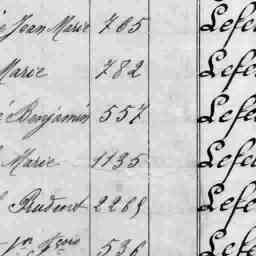 é Jean Marie 705 Lefe
Marie 782 Lefe
é Benjamin 557 Lefe
Marie 1135 Lefe
Prudent 2269 Lefe
jn fcois 536 Lefe